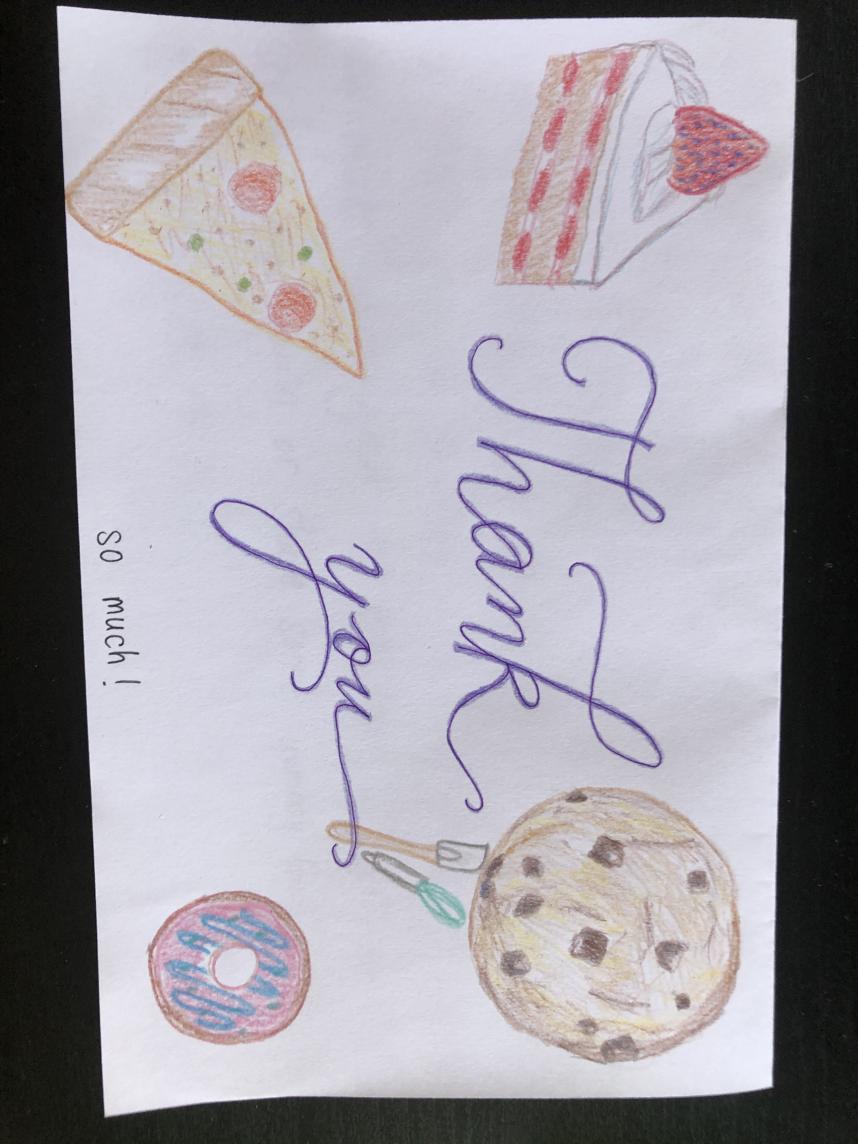 Thank
you
so much!